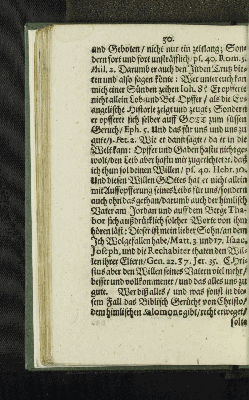 50.
und Geboten / nicht nur ein zeitlang; Son-
dern fort und fort unsträfflich / ps. 40. Rom. 5.
Phil. 2. Darumb er auch den Jüden Trutz bie-
ten und also sagen könte: Wer unter euch kan
mich einer Sünden zeihen Joh. 8? Er opfferte
nicht allein Lob und Bet Opffer / als die Ev-
angelische Historie zeigt und zeuget; Sondern
er opfferte sich selber auff GOTT zum süssen
Geruch / Eph. 5. Und das für uns und uns zu
gute / 1. Pet. 2. Wie er dann sagte / da er in die
Welt kam: Opffer und Gaben hastu nicht ge-
wolt / den Leib aber hastu mir zugerichtet ec. daß
ich thun sol deinen Willen / ps. 40. Hebr. 10.
Und diesen Willen GOttes hat er nicht allein
mit Auffopfferung seines Leibs für uns / sondern
auch ohn das gethan / darumb auch der himlisch
Vater am Jordan und auff dem Berge Tha-
bor sich außdrücklich solcher Worte von ihm
hören läst: Dieser ist mein lieber Sohn / an dem
Ich Wolgefallen habe / Matt. 3. und 17. Isaac,
Joseph, und die Rechabiter thaten den Wil-
len ihrer Eltern / Gen. 22. 37. Jer. 35. CHri-
stus aber den Willen seines Vatern viel mehr /
besser und vollkommener / und das alles uns zu
gute. Wer diß alles / und was sonst in die-
sem Fall das Biblisch Gerücht von Christo /
dem himlischen Salomone gibt / recht erweget /
solte